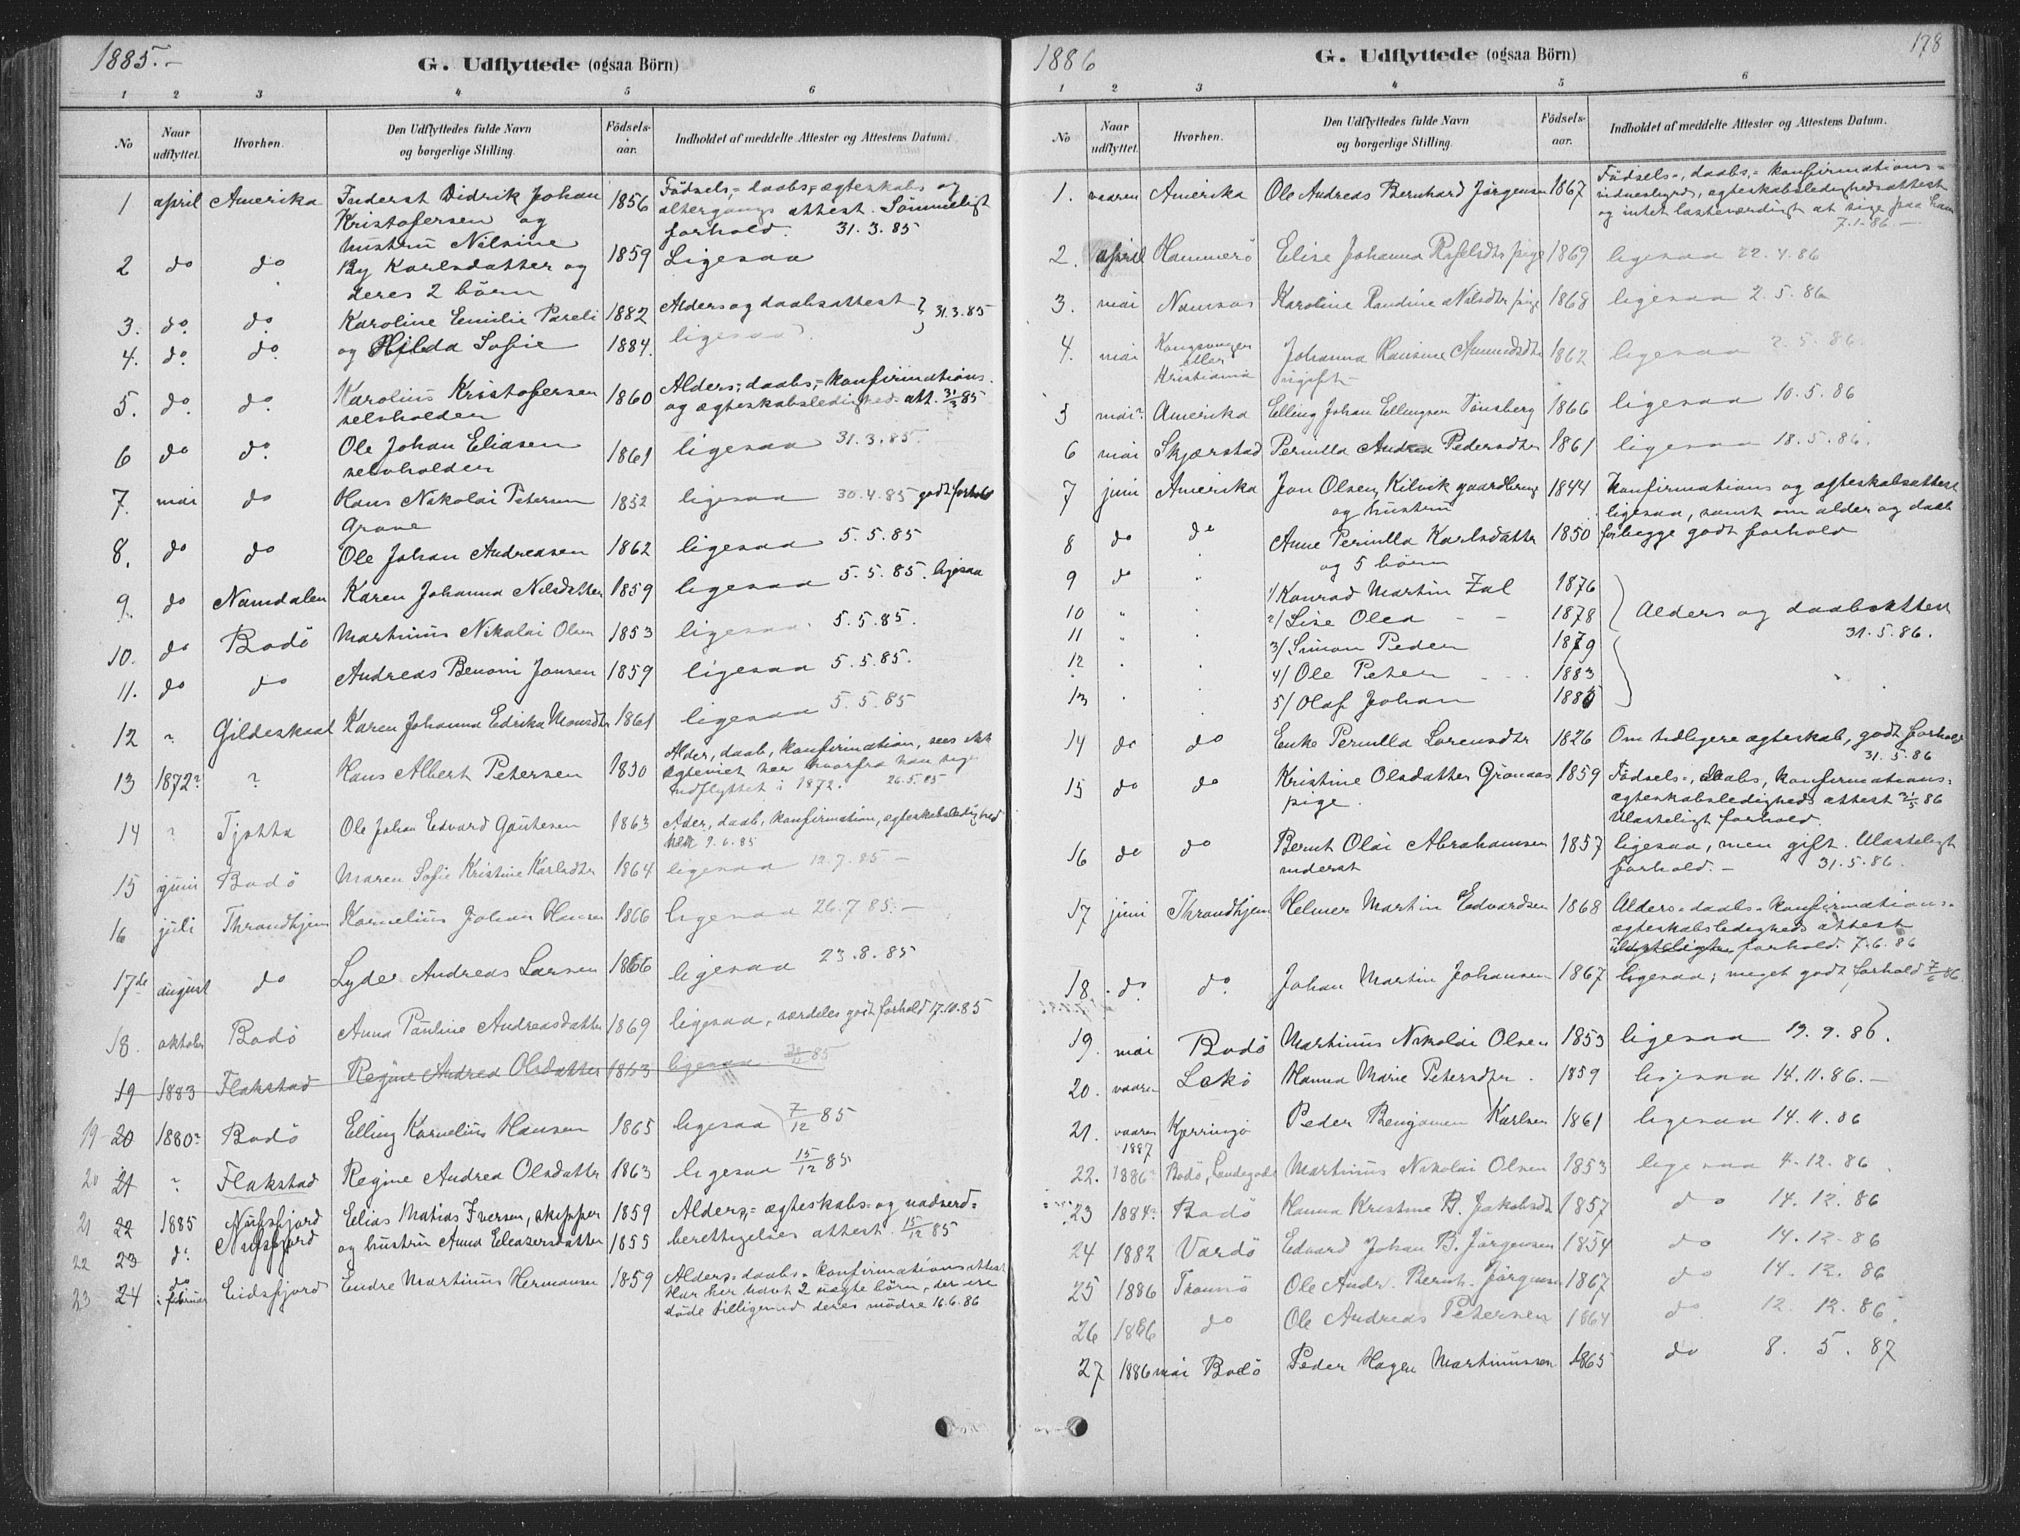 1885.-
G. Udflyttede (ogsaa Börn)
1 2 3 4 5 6
No
Naar udflyttet.
Hvorhen.
Den Udflyttedes fulde Navn og borgerlige Stilling.
Födsels-aar.
Indholdet af meddelte Attester og Attestens Datum.
1 april Amerika Inderst Didrik Johan 1856 Födsels,= daabs,= ægteskabs og
Kristofersen og altergangs attest. Sömmeligt
hustru Nilsine forhold. 31.3.85
2 do do By Karlsdatter og 1859 Ligesaa
deres 2 börn
3. do. do. Karoline Emilie Pareli 1882 Alders og daabsattest } 31.3.85
4. do. do. og Hilda Sofie 1884. ligesaa
5. do. do. Karolius Kristofersen 1860 Alders,= daabs,= konfirmations
selvholden og ægteskabsledigheds att. 31/3 85
6 do do. Ole Johan Eliasen 1861 ligesaa 31.3.85.
selvholden
7. mai do Hans Nikolai Petersen 1852 ligesaa 30.4.85 godt forhold
Grane
8. do do Ole Johan Andreasen 1862 ligesaa 5.5.85
9. do Namdalen Karen Johanna Nilsdatter 1859 ligesaa 5.5.85. ligesaa
10. do Bodö Martinus Nikolai Olsen 1853 ligesaa. 5.5.85.
11. do do Andreas Benoni Jansen 1859 ligesaa 5.5.85.
12 " Gildeskaal Karen Johanna Edrika Monsdtr 1861 ligesaa 5.5.85
13 1872? ? Hans Albert Petersen 1830 Alder, daab, konfirmation, sees ikke
her hvorfra han
udflyttet i 1872. 26.5.85
14 ? Tjøtta Ole Johan Edvard Gautesen 1863 Ader, daab, konfirmation, ægteskabsledighed
9.6.85
15 juni Bodö Maren Sofie Kristine Karlsdtr 1864 ligesaa 12.7.85 -
16 juli Throndhjem Kornelius Johan Hansen 1866 ligesaa 26.7 85.-
17de august do Lyder Andreas Larsen 1866 ligesaa 23.8.85
18. oktober Bodö Anna Pauline Andreasdatter 1869 ligesaa, særdeles godt forhold 17.10.85
19 1883 Flakstad Regine Andrea Olsdatter 1863 ligesaa 85
19 20 1880? Bodö Elling Kornelius Hansen 1865 ligesaa 7/12 85
20 21 ? Flakstad Regine Andrea Olsdatter 1863 ligesaa 15/12 85
21 22 1885 Nufsfjord Elias Matias Iversen, skipper 1859 Alders,= ægteskabs= og nadverd=
22 23 do Nufsfjord og hustru Anna Eleasersdatter 1855 berettigelses attest. 15/12 85
23 24 do februar Eidsfjord Endre Martinus Hermansen 1859 Alders,= daabs= konfirmationsattest
Har her havt 2 uægte börn, der ere
döde tilligemed deres mödre 16.6.86
1886
G. Udflyttede (ogsaa Börn)
198
1 2 3 4 5 6
No
Naar udflyttet.
Hvorhen.
Den Udflyttedes fulde Navn og borgerlige Stilling.
Födsels-aar.
Indholdet af meddelte Attester og Attestens Datum.
1. vaaren Amerika Ole Andreas Bernhard Jørgensen 1867 Födsels-, daabs,= konfirmations=
ægteskabsledighedsattest
og intet lasteværdigt at sige paa ham
7.1.86.-
2. april Hammerö Elise Johanna Rafelsdtr pige 1869 ligesaa 22.4.86
3. mai Namsos Karoline Randine Nilsdtr pige 1868 ligesaa 2.5.86
4. mai Kongsvinger eller Kristiania Johanna Hansine Amundsdtr 1862 ligesaa 2.5.86.
ugift
5 mai? Amerika Elling Johan Ellingsen Tönsberg 1866 ligesaa 10.5.86
6 mai Skjærstad Pernilla Andrea Pedersdtr 1861 ligesaa 18.5.86.
7 juni Amerika Jon Olsen Kilvik gaardbruger 1844 Konfirmations og ægteskabsattest
og hustru ligesaa, samt om alder og daab
8 do do Anne Pernilla Karlsdatter 1850 forbegge godt forhold
og 5 börn
9 do " 1/ Konrad Martin Zal 1876
10 " " 2/ Lise Olea - - 1878 } Alders og daabsattest
11 " " 3/ Simon Peder 1879 31.5.86.
12 . . 4/ Ole Peter - - - 1883
13 . . 5/ Olaf Johan 1885
14 do do Enke Pernilla Lorensdtr 1826 Om tidligere ægteskab, godt forhold
31.5.86
15 do do Kristine Olsdatter Grönaas 1859 Födsels-, daabs, konfirmations=
pige. ægteskabsledigheds attest 31/5 86
Ulasteligt forhold.
16 do do Bernt Olai Abrahamsen 1857 ligesaa, men gift. Ulasteligt
inderst forhold.- 31.5.86.
17 juni Throndhjem Helmer Martin Edvardsen 1868 Alders= daabs= konfirmations=
ægteskabsledigheds attest
forhold. 7.6.86
18. do. do. Johan Martin Johansen 1867 ligesaa; meget godt forhold 7/6 86.
19. mai Bodö Martinus Nikolai Olsen 1853 ligesaa 19.9.86.
20. vaaren Lekö Hanna Marie Petersdtr. 1859 ligesaa 14.11.86.-
21. vaaren 1887 Kjerringö Peder Benjamin Karlsen 1861 ligesaa 14.11.86
22. 1886? Bodö, Martinus Nikolai Olsen 1853 ligesaa 4.12.86.
23 1884? Bodö Hanna Kristine B. Jakobsdtr 1857 do 14.12.86
24 1882 Vardö Edvard Johan B. Jörgensen 1854 do 14.12-86
25 1886 Tromsö Ole Andr. Bernh. Jörgensen 1867 do 14.12.86
26 1886 do Ole Andreas Petersen 1864 do. 12.12.86.
27 1886 mai Bodö Peder Hagen Martinussen 1865 do 8. 5. 87